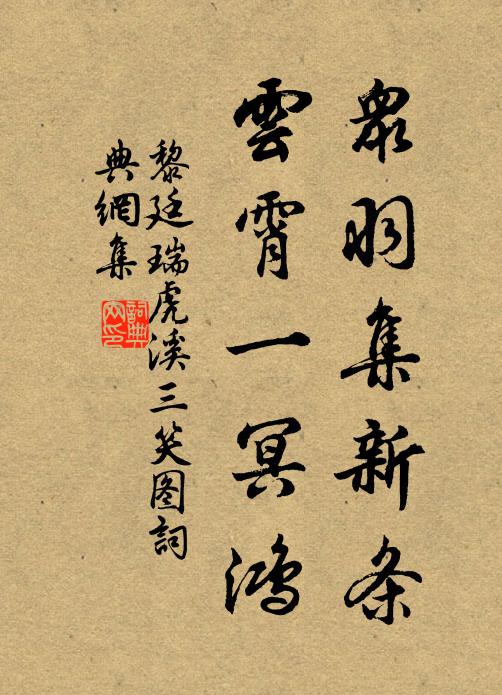 眾羽集新条
雲霄一冥鴻
黎廷瑞虎溪三笑图詞
典網集
詞典网印